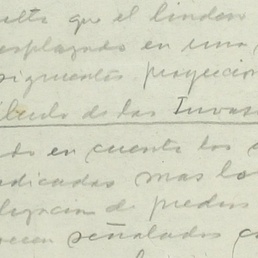 ulta que el lindero
esplazado en una
siguientes proyeccion
álculo de las Invas
do en cuenta los
ndicadas mas lo
lizacion de predios
recen señalados co